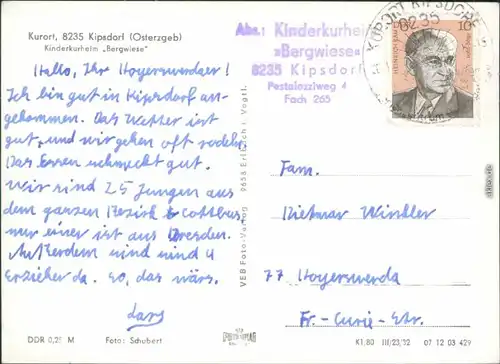 Kurort, 8235 Kipsdorf (Osterzgeb)
Kinderkurheim „Bergwiese"
Hallo, Ihr Hoyerswerdaer!
Ich bin gut in Kipsdorf an-
gekommen. Das Wetter ist
gut, und wir gehen oft rodeln.
Das Essen schmeckt gut.
Wir sind 25 Jungen aus
dem ganzen Bezirk Cottbus
nur einer ist aus Dresden.
Außerdem sind 4
Erzieher da. So, das wärs.
Lars
DDR 0,25 M Foto: Schubert
VEB Foto-Verlag 9658 Erlbach i. Vogtl.
Abs.: Kinderkurheim
»Bergwiese«
8235 Kipsdorf
Pestalozziweg 4
Fach 265
KURORT KIPSDORF
8235
10
HEINRICH RAU
DDR
Fam.
Dietmar Winkler
77 Hoyerswerda
Fr.-Curie-Str.
K1/80 III/23/32 07 12 03 429